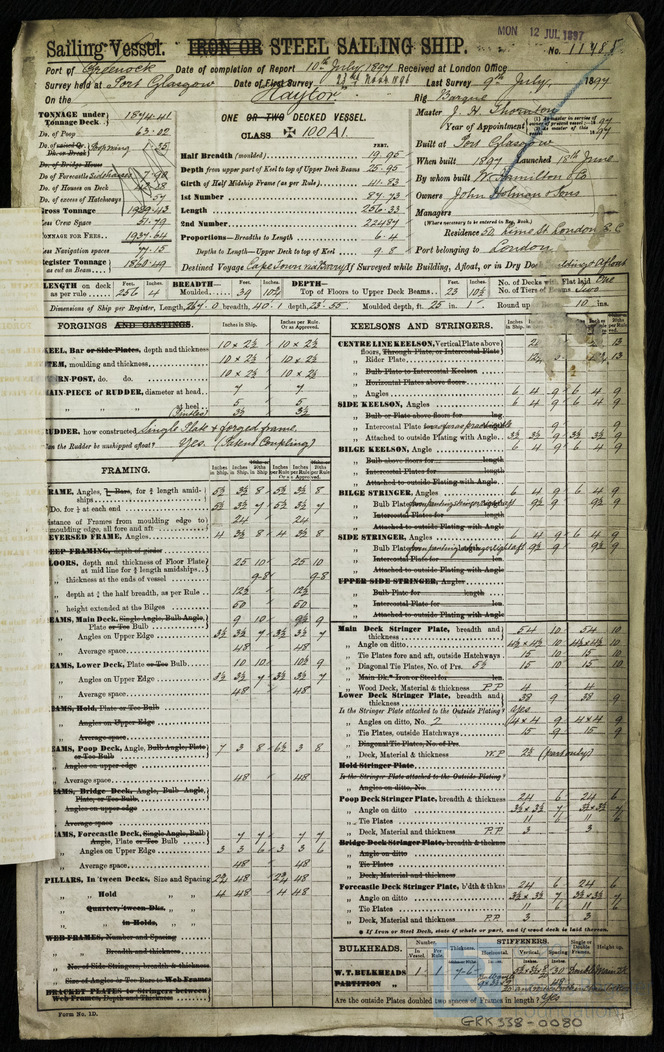 MON 12 JUL 1897
Sailing Vessel. IRON OR STEEL SAILING SHIP. No. 11488
Port of Greenock Date of completion of Report 10th July, 1897 Received at London Office
Survey held at Port Glasgow Date of First Survey 23rd Nov 1896 Last Survey 9th July, 1897
On the "Haytor" Rig Barque
TONNAGE under Tonnage Deck 1874.41
Do. of Poop 63.02
Do. of Forecastle
Do. of Houses on Deck
Do. of excess of Hatchways
Gross Tonnage
Less Crew Space 51.79
TONNAGE FOR FEES 1937.64
Less Navigation spaces 77.15
Register Tonnage as cut on Beam 1860.49
ONE OR TWO DECKED VESSEL
CLASS ✠ 100A1.
FEET.
Half Breadth (moulded) 19.95
Depth from upper part of Keel to top of Upper Deck Beams 25.95
Girth of Half Midship Frame (as per Rule) 41.83
1st Number 87.73
Length 256.33
2nd Number 22487
Proportions—Breadths to Length 6.4
Depths to Length—Upper Deck to top of Keel 9.8
Destined Voyage Cape Town via Barry If Surveyed while Building, Afloat, or in Dry Dock Building & Afloat
Master J. H. Thornton
Year of Appointment
Built at Port Glasgow
When built 1897 Launched 18th June
By whom built W. Hamilton & Co
Owners John Holman & Sons
Managers
(Where necessary to be entered in Reg. Book.)
Residence 50, Lime St London E.C
Port belonging to London
LENGTH on deck as per rule 256 4 BREADTH— Moulded 39 10¾ DEPTH— Top of Floors to Upper Deck Beams 23 10½ No. of Decks with Flat laid One No. of Tiers of Beams Two
Dimensions of Ship per Register, Length, 267.0 breadth, 40.1 depth, 23.55 Moulded depth, ft. 25 in. 1 Round up 10 ins.
FORGINGS AND CASTINGS. Inches in Ship. Inches per Rule. Or as approved.
KEEL, Bar or Side Plates, depth and thickness 10 x 2½ 10 x 2½
STEM, moulding and thickness 10 x 2½ 10 x 2½
STERN-POST, do. do. 10 x 2½ 10 x 2½
MAIN-PIECE of RUDDER, diameter at head 7 7
" " at heel 5 5
(Pintles) 3½ 3½
RUDDER, how constructed Single Plate & forged frame.
Can the Rudder be unshipped afloat? Yes. (Patent Coupling)
FRAMING.
FRAME, Angles, Z Bars, for ⅗ length amidships 5½ 3½ 8 5½ 3½ 8
Do. for ⅕ at each end 5½ 3½ 7 5½ 3½ 7
Distance of Frames from moulding edge to moulding edge, all fore and aft 24 24
REVERSED FRAME, Angles 4 3½ 8 4 3½ 8
DEEP FRAMING, depth of girder
FLOORS, depth and thickness of Floor Plate at mid line for ½ length amidships 25 10 25 10
" thickness at the ends of vessel 9-8 9-8
" depth at ¾ the half breadth, as per Rule 12½ 12½
" height extended at the Bilges 50 50
BEAMS, Main Deck, Single Angle, Bulb Angle, Plate or Tee Bulb 9 10 9½ 9
" Angles on Upper Edge 3½ 3½ 7 3½ 3½ 7
" Average space 48 48
BEAMS, Lower Deck, Plate or Tee Bulb 10 10 10½ 9
" Angles on Upper Edge 3½ 3½ 7 3½ 3½ 7
" Average space 48 48
BEAMS, Hold, Plate or Tee Bulb
" Angles on Upper Edge
" Average space
BEAMS, Poop Deck, Angle, Bulb Angle, Plate or Tee Bulb 7 3 8 6½ 3 8
" Angles on upper edge
" Average space 48 48
BEAMS, Bridge Deck, Angle, Bulb Angle, Plate, or Tee Bulb
" Angles on upper edge
" Average space
BEAMS, Forecastle Deck, Single Angle, Bulb Angle, Plate or Tee Bulb 7 7 7 7
" Angles on Upper Edge 3 3 6 3 3 6
" Average space 48 48
PILLARS, In 'tween Decks, Size and Spacing 2¾ 48 2¾ 48
" Hold " " 4 48 4 48
" Quarter, 'tween Dks. " "
" in Holds, " "
WEB FRAMES, Number and Spacing
" Breadth and thickness
" No. of Side Stringers, breadth & thickness
" Size of Angles or Tee Bars to Web Frames
BRACKET PLATES to Stringers between Web Frames, Depth and Thickness
Form No. 1D.
KEELSONS AND STRINGERS. Inches in Ship. Inches per Rule.
CENTRE LINE KEELSON, Vertical Plate above floors, Through Plate, or Intercostal Plate
" Rider Plate
" Bulb Plate to Intercostal Keelson
" Horizontal Plates above floors
" Angles 6 4 9 6 4 9
SIDE KEELSON, Angles 6 4 9 6 4 9
" Bulb or Plate above floors for length
" Intercostal Plate fore & aft as far as practicable 9 9
" Attached to outside Plating with Angle 3½ 3½ 9 3½ 3½ 9
BILGE KEELSON, Angle 6 4 9 6 4 9
" Bulb above floors for length
" Intercostal Plates for length
" Attached to outside Plating with Angle
BILGE STRINGER, Angles 6 4 9 6 4 9
" Bulb Plate 9½ 9 9½ 9
" Intercostal Plates for length
" Attached to outside Plating with Angle
SIDE STRINGER, Angles 6 4 9 6 4 9
" Bulb Plate 9½ 9 9½ 9
" Intercostal Plates for len.
" Attached to outside Plating with Angle
UPPER SIDE STRINGER, Angles
" Bulb Plate for length
" Intercostal Plates for len.
" Attached to outside Plating with Angle
Main Deck Stringer Plate, breadth and thickness 54 10 54 10
" Angle on ditto 4½ x 4½ 10 4½ x 4½ 10
" Tie Plates fore and aft, outside Hatchways 15 10 15 10
" Diagonal Tie Plates, No. of Prs. 5½ 15 10 15 10
" Main Dk.* Iron or Steel for len.
" Wood Deck, Material & thickness P.P 4 4
Lower Deck Stringer Plate, breadth and thickness 38 9 38 9
Is the Stringer Plate attached to the Outside Plating? Yes
" Angles on ditto, No. 2 4 x 4 9 4 x 4 9
" Tie Plates, outside Hatchways 15 9 15 9
" Diagonal Tie Plates, No. of Prs.
" Deck, Material & thickness W.P 2½ (part only)
Hold Stringer Plate
Is the Stringer Plate attached to the Outside Plating?
" Angles on ditto, No.
Poop Deck Stringer Plate, breadth & thickness 24 6 24 6
" Angle on ditto 3½ x 3½ 7 3½ x 3½ 7
" Tie Plates 11 6 11 6
" Deck, Material and thickness P.P 3 3
Bridge Deck Stringer Plate, breadth & thickness
" Angle on ditto
" Tie Plates
" Deck, Material and thickness
Forecastle Deck Stringer Plate, b'dth & thkns 24 6 24 6
" Angle on ditto 3½ x 3½ 7 3½ x 3½ 7
" Tie Plates 11 6 11 6
" Deck, Material and thickness P.P 3 3
* If Iron or Steel Deck, state if whole or part, and if wood deck is laid thereon.
BULKHEADS. Number. In Vessel. Per Rule. Thickness. STIFFENERS. Horizontal. Vertical. Spacing Single or Double Frames. Height up.
W.T. BULKHEADS 1 1 7-6 30 Double Main Dk
PARTITION "
Are the outside Plates doubled two spaces of Frames in length? Yes
GRK 338-0080